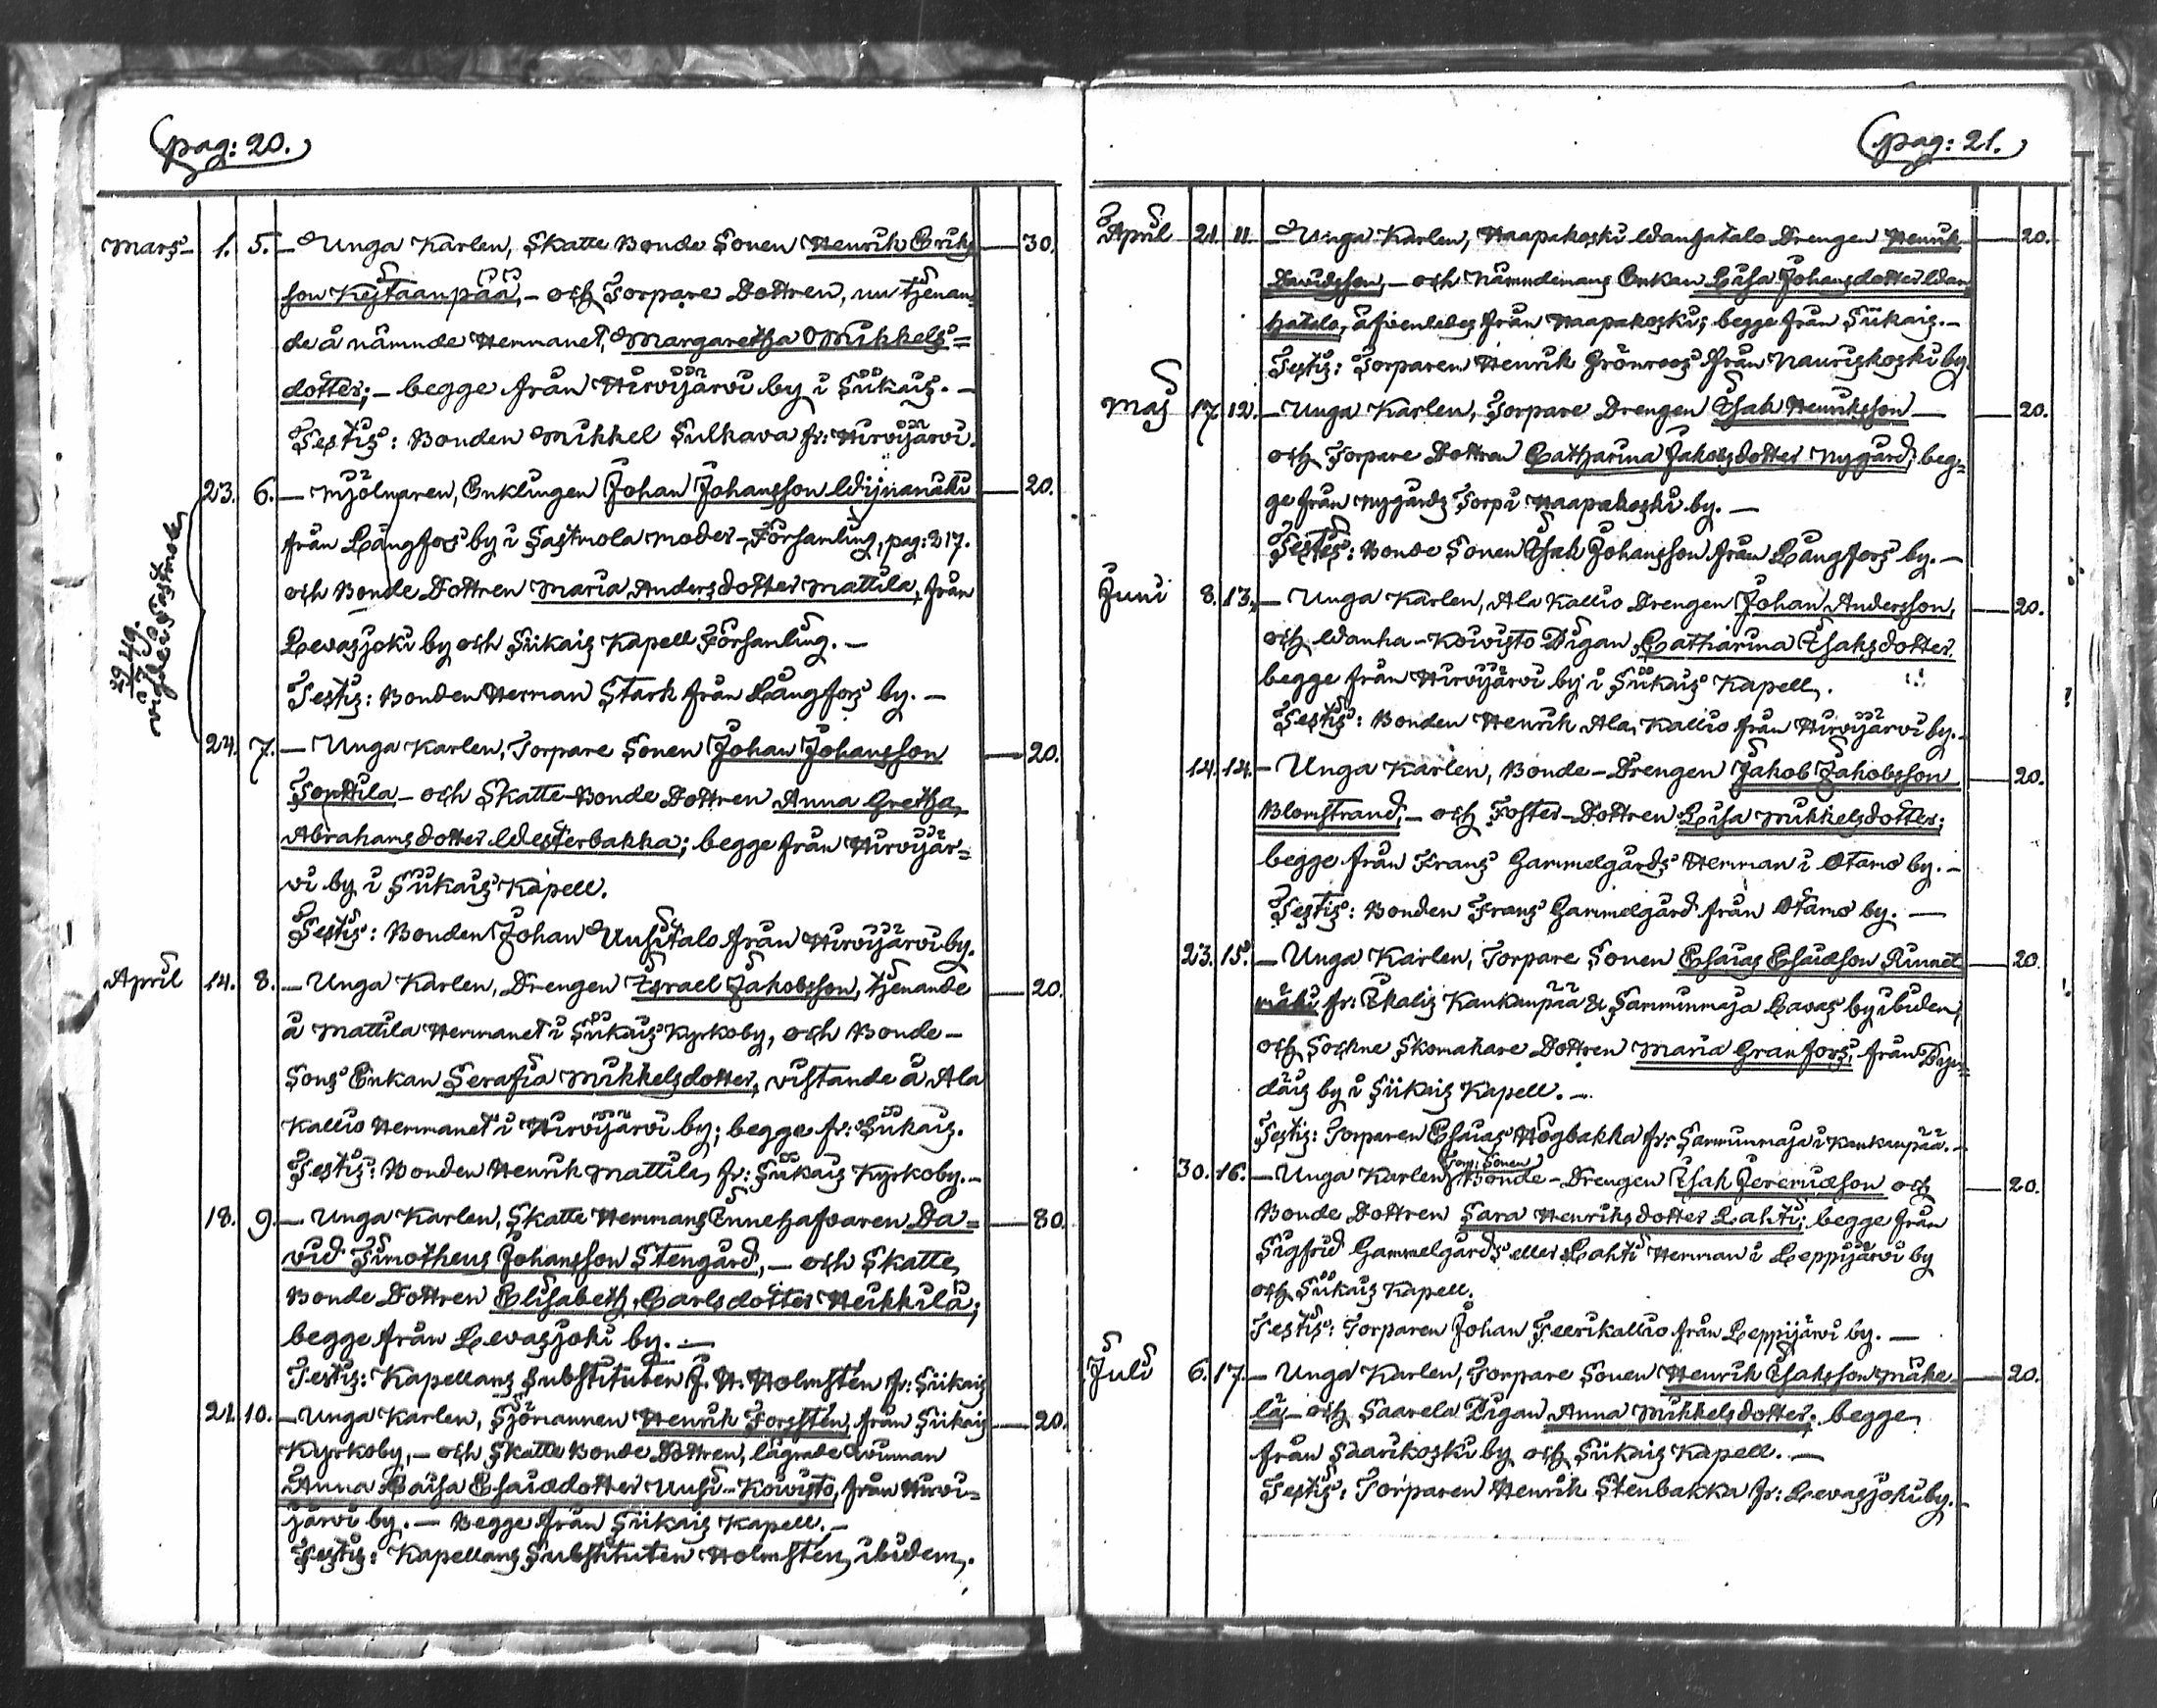 (pag: 20.)
Mars- 1. 5. - Unga Karlen, Skatte Bonde Sonen Henrik Eriks- 30.
son Kejtaanpää, - och Torpare Dottren, nu tjenan-
de å nämnde Hemmanet, Margaretha Mikkels=
dotter; - begge från Hirvijärvi by i Siikais. -
Testis: Bonden Mikkel Sulkava fr: Hirvijärvi.
23. 6. - Mjölnaren, Enklingen Johan Johansson Wijnamäki 20.
från Långfors by i Sastmola Moder-Församling, pag: 217.
och Bonde Dottren Maria Andersdotter Mattila, från
Levasjoki by och Siikais Kapell Församling. -
Testis: Bonden Herman Stark från Långfors by. -
29/3 49.
vigde i Sastmola
24. 7. - Unga Karlen, Torpare Sonen Johan Johansson 20.
Sonttila - och Skatte-Bonde Dottren Anna Gretha
Abrahamsdotter Westerbakka; begge från Hirvijär=
vi by i Siikais Kapell.
Testis: Bonden Johan Uusitalo från Hirvijärvi by.
April 14. 8. - Unga Karlen, Drengen Israel Jakobsson, tjenande 20.
å Mattila Hemmanet i Siikais Kyrkoby, och Bonde-
Sons Enkan Serafia Mikkelsdotter, vistande å Ala
Kallio Hemmanet i Hirvijärvi by; begge fr: Siikais.
Testis: Bonden Henrik Mattila, fr: Siikais Kyrkoby. -
18. 9. - Unga Karlen, Skatte Hemmans Innehafvaren Da= 80.
vid Timotheus Johansson Stengård, - och Skatte
Bonde Dottren Elisabeth Carlsdotter Heikkilä;
begge från Levasjoki by. -
Testis: Kapellans Substituten J. H. Holmstén fr: Siikais
21. 10. - Unga Karlen, Sjömannen Henrik Forsstén, från Siikais 20.
Kyrkoby, - och Skatte Bonde Dottren, lägrade Qvinnan
Anna Caisa Esaiædotter Uusi-Koivisto, från Hirvi-
järvi by. - Begge från Siikais Kapell. -
Testis: Kapellans Substituten Holmstén, ibidem.
(pag: 21.)
April 21. 11. - Unga Karlen, Haapakoski Wanhatalo Drengen Henrik 20.
Davidsson, - och Nämndemans Enkan Lisa Johansdotter Wan
hatalo, äfvenledes från Haapakoski; begge från Siikais. -
Testis: Torparen Henrik Grönroos från Nauriskoski by.
Maj 17. 12. - Unga Karlen, Torpare Drengen Isak Henriksson - 20.
och Torpare Dottren Catharina Jakobsdotter Nygård; beg=
ge från Nygårds Torp i Haapakoski by. -
Testes: Bonde Sonen Isak Johansson från Långfors by. -
Juni 8. 13. - Unga Karlen, Ala Kallio Drengen Johan Andersson, 20.
och Wanha-Koivisto Pigan Catharina Isaksdotter
begge från Hirvijärvi by i Siikais Kapell.
Testis: Bonden Henrik Ala Kallio från Hirvijärvi by. -
14. 14. - Unga Karlen, Bonde-Drengen Jakob Jakobsson 20.
Blomstrand, - och Foster-Dottren Lisa Mikkelsdotter;
begge från Frans Gammelgårds Hemman i Otamo by. -
Testis: Bonden Frans Gammelgård från Otamo by. -
23. 15. - Unga Karlen, Torpare Sonen Esaias Esaiæson 20.
mäki fr: Ikalis Kankanpää & Samminmaja Lavas by ibidem,
och Sockne Skomakare Dottren Maria Granfors, från
däis by i Siikais Kapell. -
Testis: Torparen Esaias Högbakka fr: Samminmaja i Kankanpää. -
30. 16. - Unga Karlen, Torp: Sonen Bonde-Drengen Isak Jeremiæson och 20.
Bonde Dottren Sara Henriksdotter Lahti; begge från
Sigfrid Gammelgårds eller Lahti Hemman i Leppijärvi by
och Siikais Kapell.
Testis: Torparen Johan Teerikallio från Leppijärvi by. -
Juli 6. 17. - Unga Karlen, Torpare Sonen Henrik Isaksson Mäke 20.
lä, - och Saarela Pigan Anna Mikkelsdotter; begge
från Saarikoski by och Siikais Kapell. -
Testis: Torparen Henrik Stenbakka fr: Levasjoki by. -